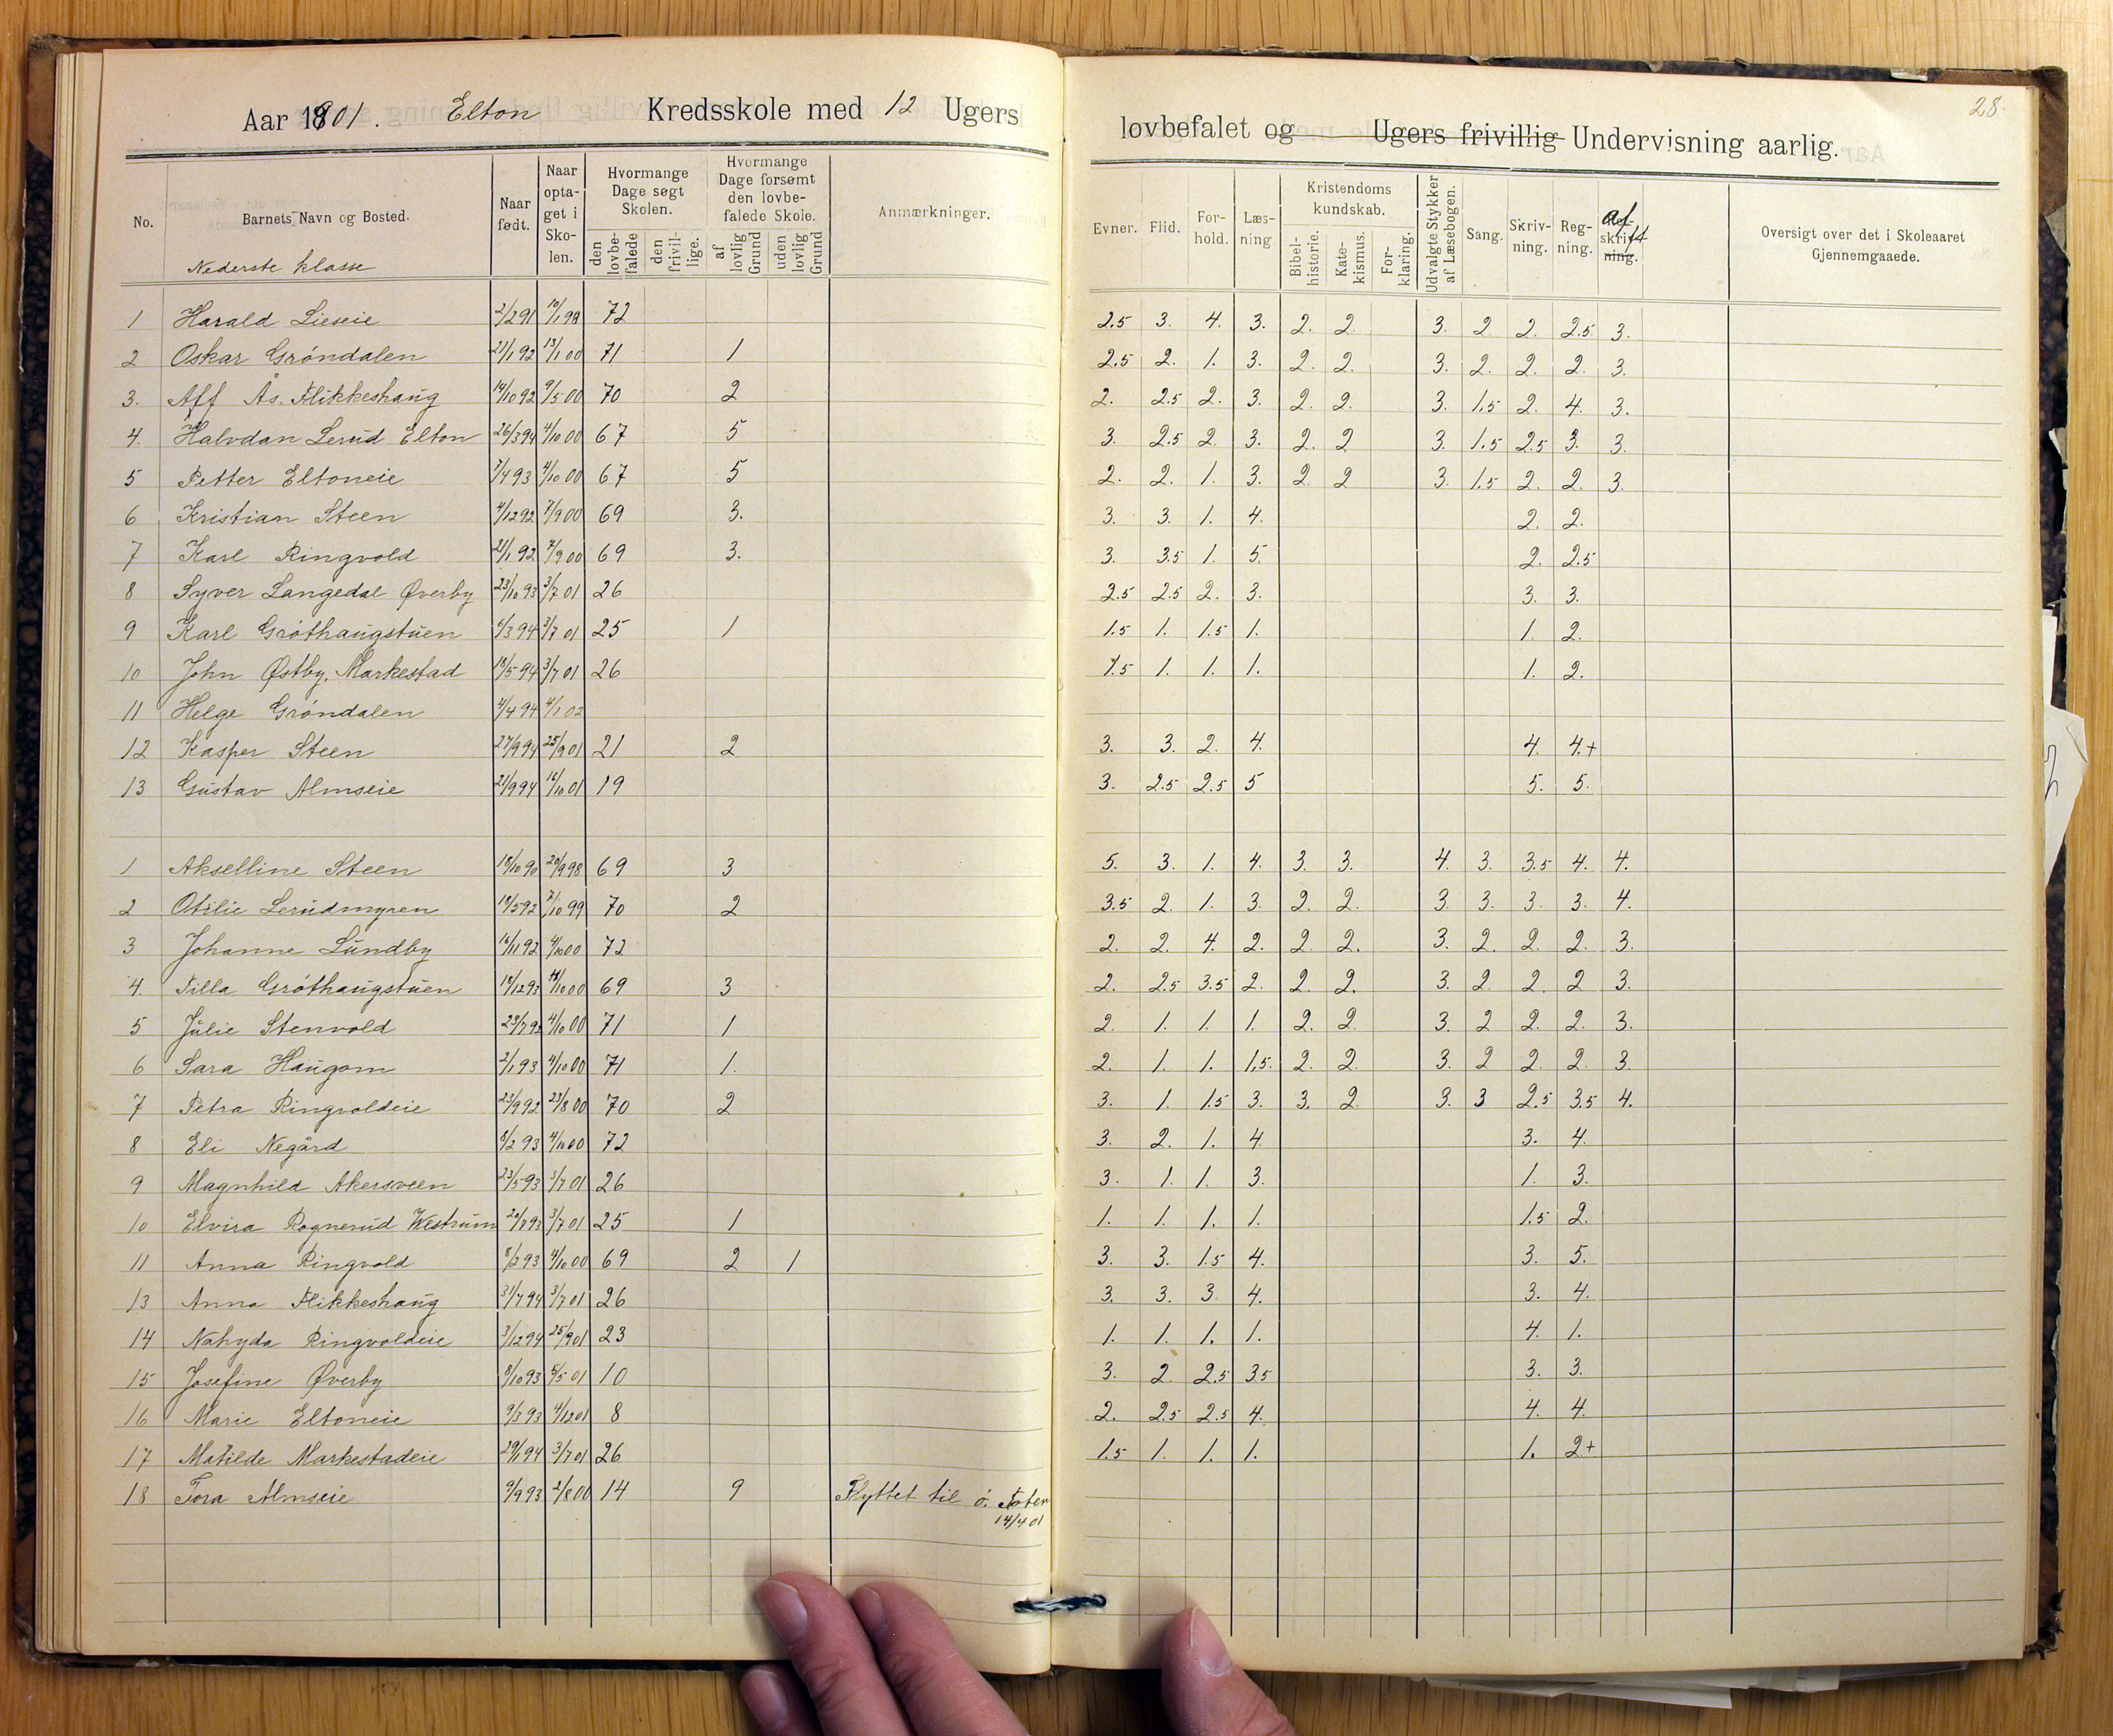 Aar 1901. Elton Kredsskole med 12 Ugers
No. Barnets Navn og Bosted. Naar født. Naar optaget i Skolen. Hvormange Dage søgt Skolen. den lovbefalede den frivillige. Hvormange Dage forsømt den lovbefalede Skole. af lovlig Grund uden lovlig Grund Anmærkninger.
Nederste klasse
1 Harald Lieseie 2/2 91 10/1 98 72
2 Oskar Grøndalen 21/1 92 13/1 00 71 1
3. Alf Ås. Flikkeshaug 14/10 92 9/5 00 70 2
4. Halvdan Lerud Elton 26/3 94 4/10 00 67 5
5 Petter Eltoneie 7/4 93 4/10 00 67 5
6 Kristian Steen 4/12 92 7/9 00 69 3.
7 Karl Ringvold 21/1 92 7/9 00 69 3.
8 Syver Langedal Øverby 23/10 93 3/7 01 26
9 Karl Gróthaugstuen 4/3 94 3/7 01 25 1
10 John Østby, Markestad 18/5 94 3/7 01 26
11 Helge Grøndalen 4/4 94 4/1 02
12 Kasper Steen 27/9 94 25/9 01 21 2
13 Gustav Almseie 21/9 94 16/10 01 19
1 Akselline Steen 18/10 90 20/9 98 69 3
2 Otilie Lerudmyren 18/5 92 7/10 99 70 2
3 Johanne Lundby 16/11 92 4/10 00 72
4. Tilla Gróthaugstuen 18/12 93 4/10 00 69 3
5 Julie Stenvold 23/7 92 4/10 00 71 1
6 Sara Haugom 2/1 93 4/10 00 71 1.
7 Petra Ringvoldeie 23/9 92 23/8 00 70 2
8 Eli Negård 8/2 93 4/10 00 72
9 Magnhild Akersveen 23/5 93 3/7 01 26
10 Elvira Rognerud Westrum 20/7 93 3/7 01 25 1
11 Anna Ringvold 8/2 93 4/10 00 69 2 1
13 Anna Flikkeshaug 31/7 94 3/7 01 26
14 Nahyda Ringvoldeie 3/12 94 25/9 01 23
15 Josefine Øverby 8/10 93 6/5 01 10
16 Marie Eltoneie 9/3 93 4/12 01 8
17 Matilde Markestadeie 29/1 94 3/7 01 26
18 Tora Almseie 9/9 93 2/8 00 14 9 Flyttet til ö. Toten
14/4 01
28.
lovbefalet og Ugers frivillig Undervisning aarlig.
Evner. Flid. Forhold. Læsning. Kristendomskundskab. Bibelhistorie. Katekismus. Forklaring. Udvalgte Stykker af Læsebogen. Sang. Skrivning. Regning. Afskrift Oversigt over det i Skoleaaret Gjennemgaaede.
2.5 3. 4. 3. 2. 2. 3. 2 2. 2.5 3.
2.5 2. 1. 3. 2. 2. 3. 2. 2. 2. 3.
2. 2.5 2. 3. 2. 2. 3. 1.5 2. 4. 3.
3. 2.5 2. 3. 2. 2 3. 1.5 2.5 3. 3.
2. 2. 1. 3. 2. 2 3. 1.5 2. 2. 3.
3. 3. 1. 4. 2. 2.
3. 3.5 1. 5. 2. 2.5
2.5 2.5 2. 3. 3. 3.
1.5 1. 1.5 1. 1. 2.
1.5 1. 1. 1. 1. 2.
3. 3. 2. 4. 4. 4.+
3. 2.5 2.5 5 5. 5.
5. 3. 1. 4. 3. 3. 4. 3. 3.5 4. 4.
3.5 2. 1. 3. 2. 2. 3. 3. 3. 3. 4.
2. 2. 4. 2. 2. 2. 3. 2. 2. 2. 3.
2. 2.5 3.5 2. 2. 2. 3. 2. 2. 2 3.
2. 1. 1. 1. 2. 2. 3. 2 2. 2. 3.
2. 1. 1. 1.5. 2. 2. 3. 2 2. 2. 3.
3. 1. 1.5 3. 3. 2. 3. 3 2.5 3.5 4.
3. 2. 1. 4. 3. 4.
3. 1. 1. 3. 1. 3.
1. 1. 1. 1. 1.5 2.
3. 3. 1.5 4. 3. 5.
3. 3. 3. 4. 3. 4.
1. 1. 1. 1. 4. 1.
3. 2 2.5 3.5 3. 3.
2. 2.5 2.5 4. 4. 4.
1.5 1. 1. 1. 1. 2+